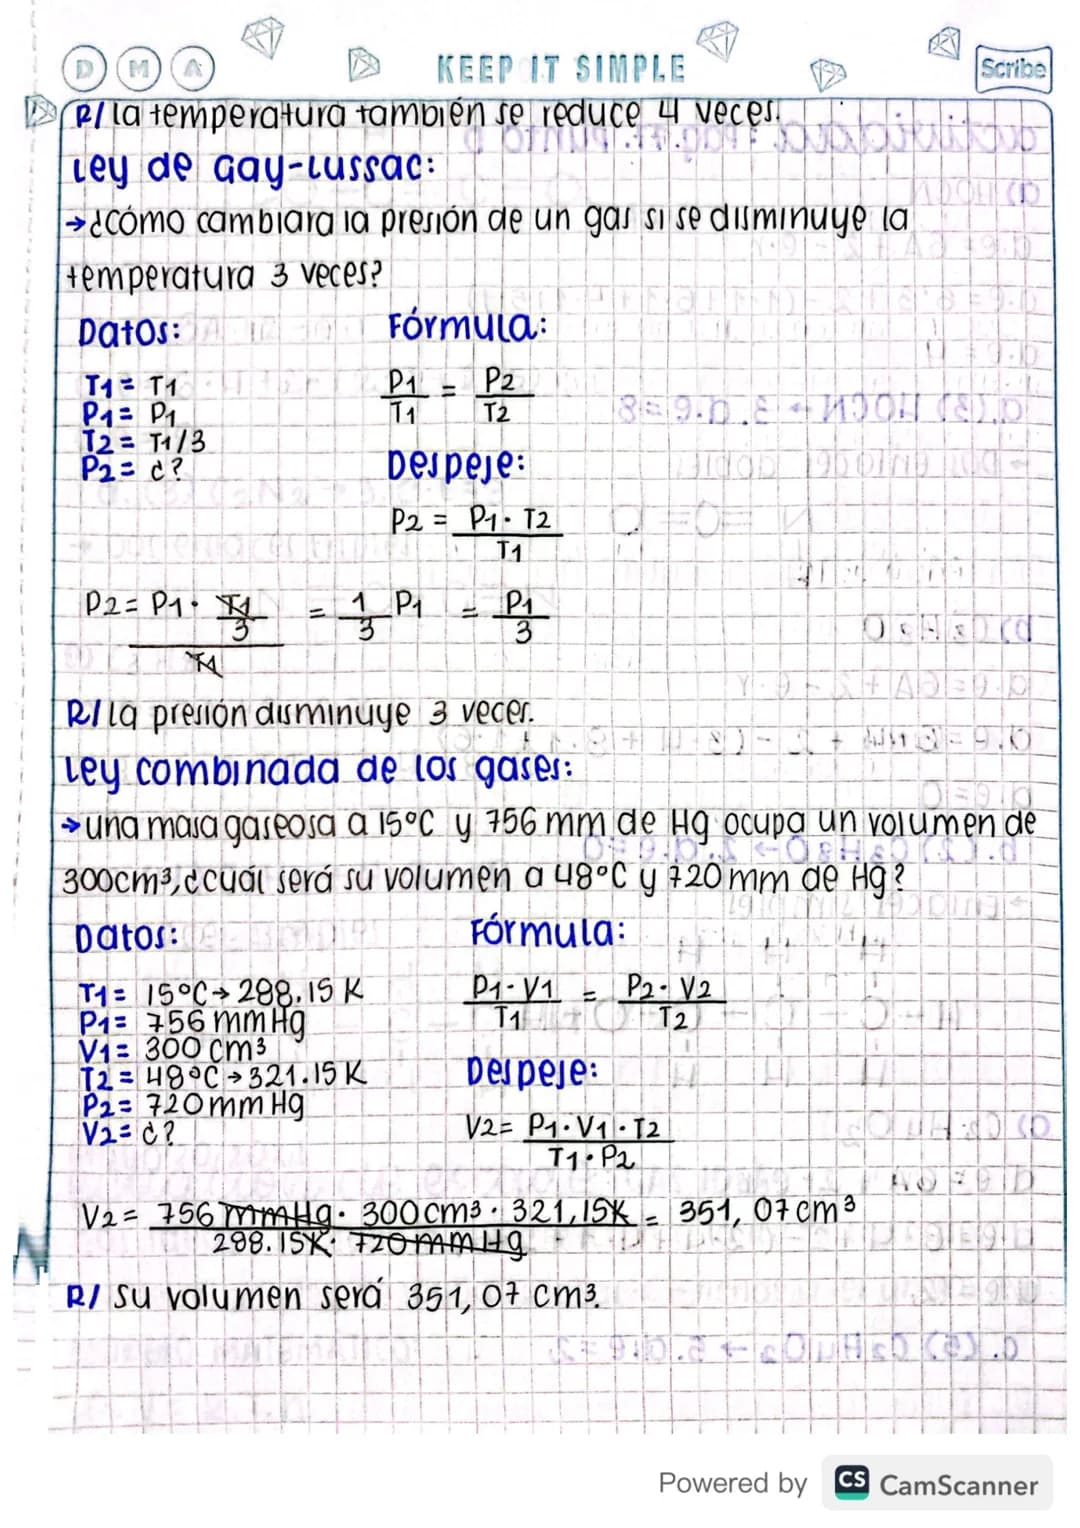 D M A KEEP IT SIMPLE Scribe
R/ la temperatura también se reduce 4 veces.
Ley de Gay-Lussac:
→¿cómo cambiara la presión de un gas si se disminuye la
temperatura 3 veces?
Datos: Fórmula:
T1 = T1
P1 = P1
T2 = T1/3
P2 = ¿?
P1/T1 = P2/T2
Despeje:
P2 = P1 · T2 / T1
P2 = P1 · T1/3 / T1 = 1/3 P1 = P1/3
R/ la presión disminuye 3 veces.
Ley combinada de los gases:
→una masa gaseosa a 15°C y 756 mm de Hg ocupa un volumen de
300cm³, ¿cuál será su volumen a 48°C y 720 mm de Hg?
Datos: Fórmula:
T1 = 15°C → 288.15 K
P1 = 756 mmHg
V1 = 300 cm³
T2 = 48°C → 321.15 K
P2 = 720 mm Hg
V2 = ¿?
P1 · V1 / T1 = P2 · V2 / T2
Despeje:
V2 = P1 · V1 · T2 / T1 · P2
V2 = 756 mmHg · 300cm³ · 321,15K / 288.15K · 720 mm Hg = 351,07 cm³
R/ su volumen será 351,07 cm³.
Powered by CS CamScanner